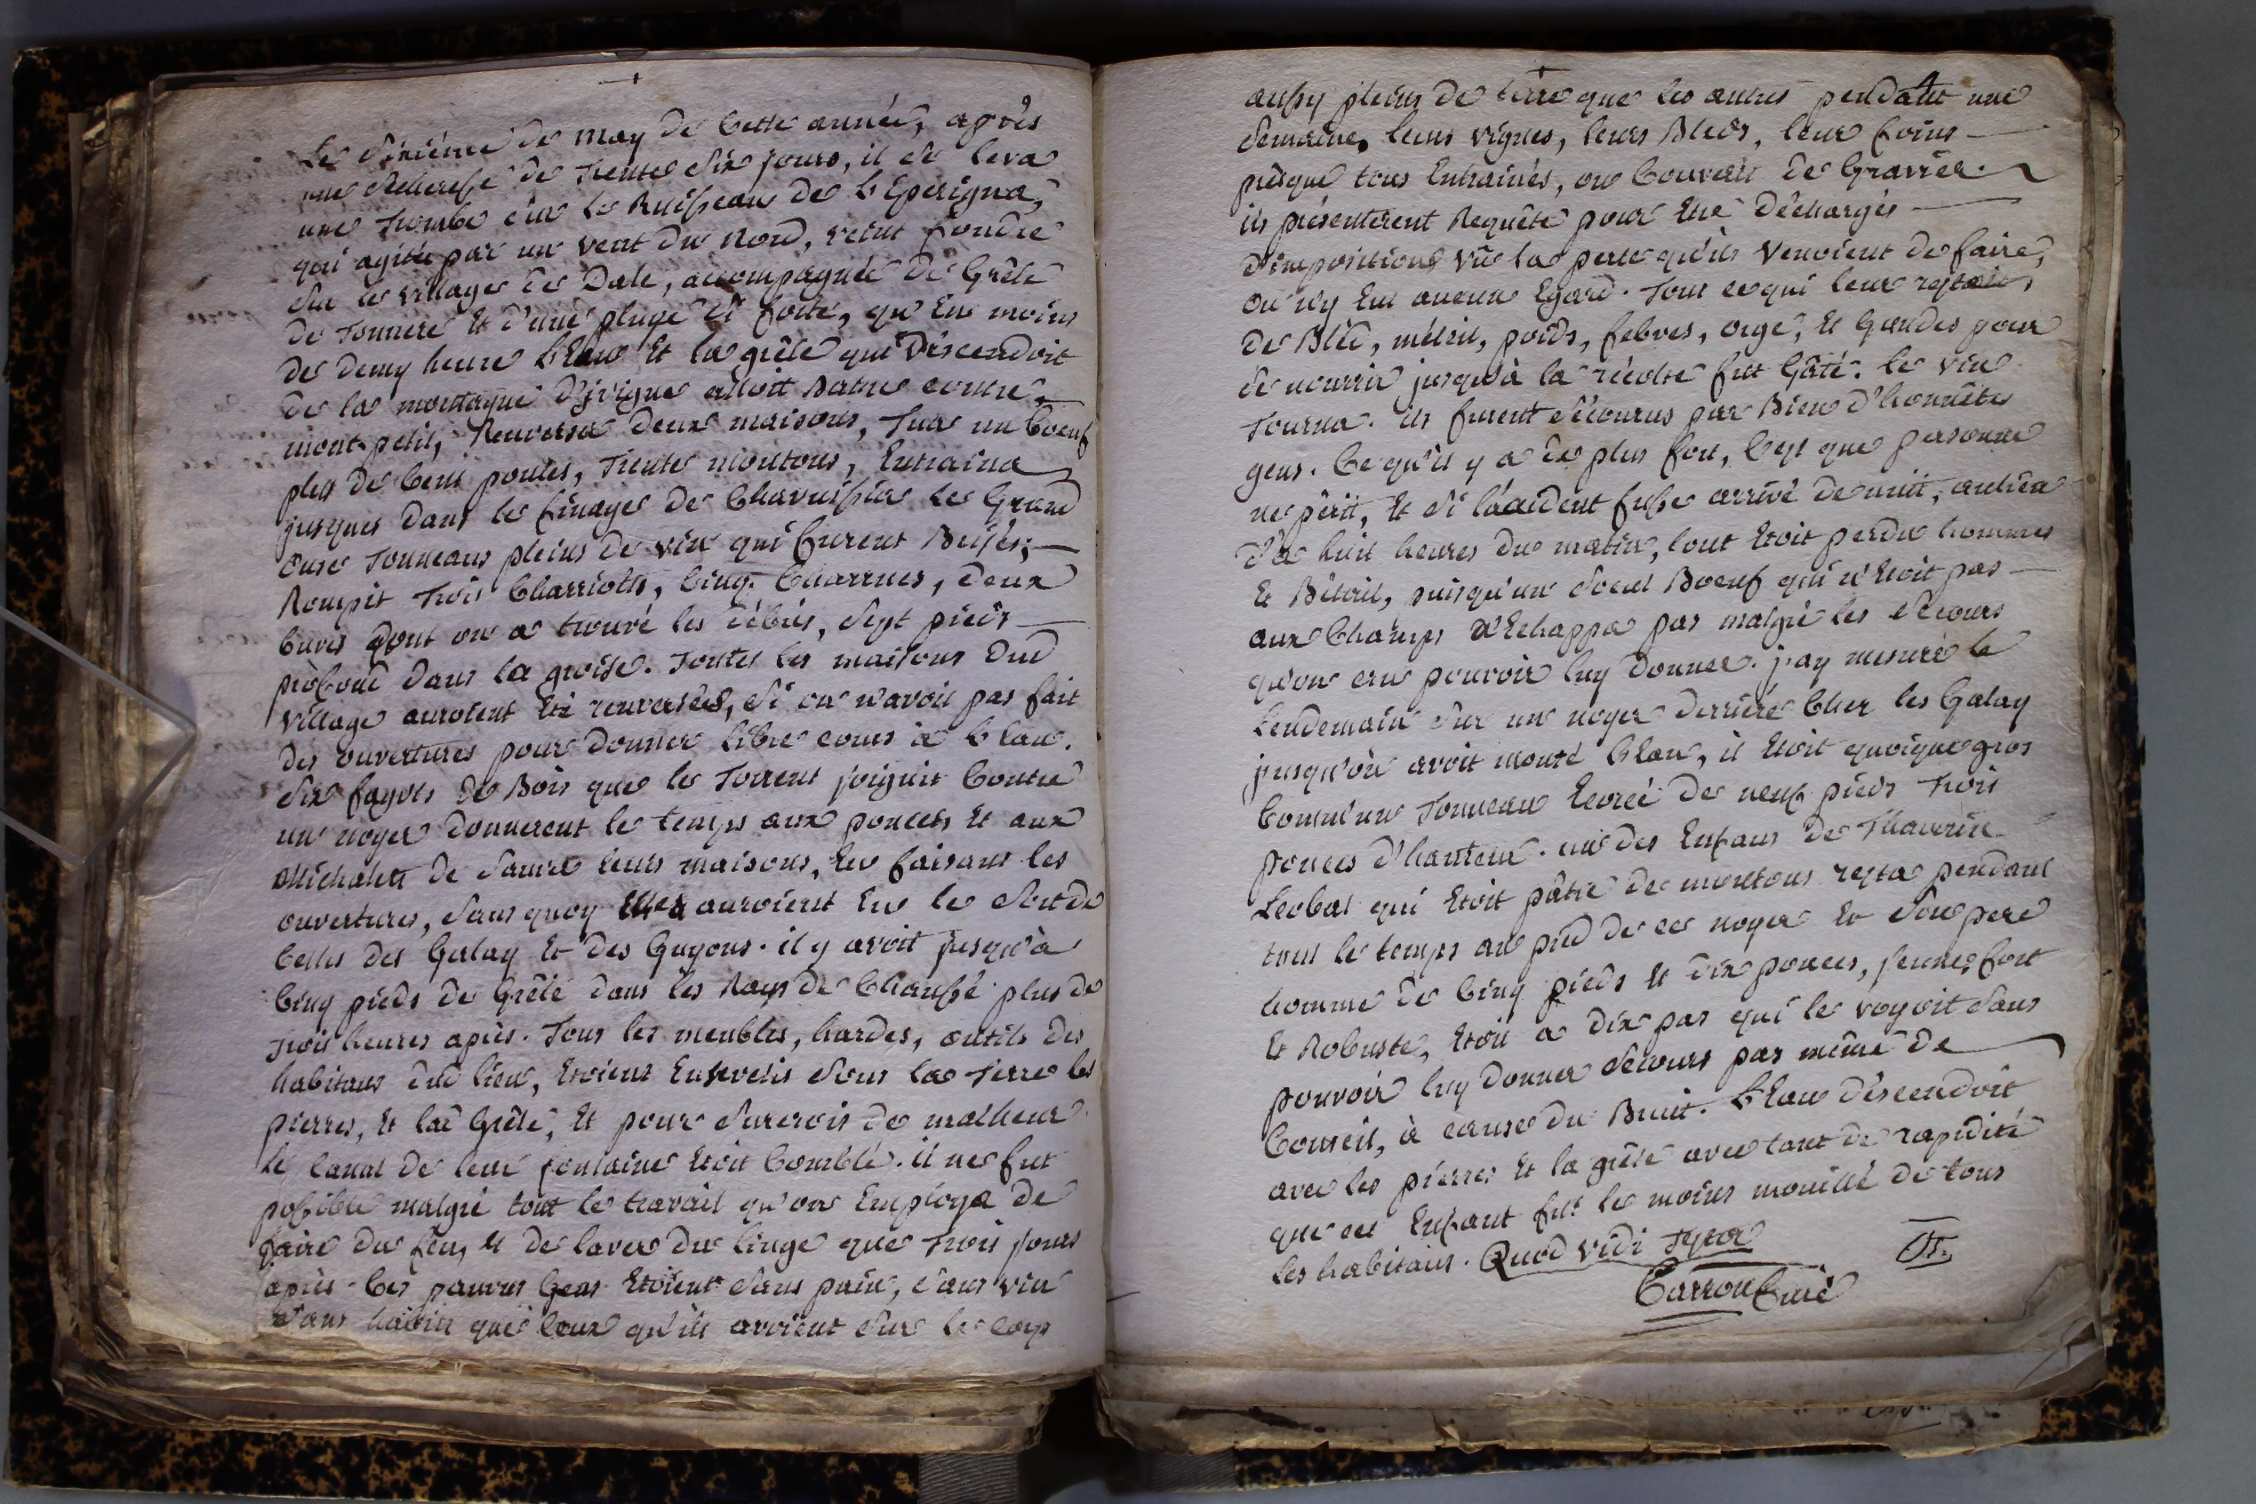 Le Sixiéme de May de Cette année, après
une secheresse de Trente Six jours, il se leva
une Trombe sur le Ruisseau de l'Eperigna,
qui agitée par un vent du Nord, vint fondre
sur le village de Date, accompagnée de Grêle
de Tonnere Et d'une pluye si forte, qu'En moins
de demy heure l'Eau Et la grêle qui Déscendoit
de la montagne d'jvigne alloit Batre contre
mont-petit, Renversa deux maisons, Tua un Boeuf
plus de Cent poules, Trente moutons, Entraina
jusques dans le finage de Chavussiat le Grand
onse Tonneaux pleins de vin qui furent Brisés;
Rompit Trois Charriotts, Cinq Charrues, deux
Cuves dont on a trouvé les débris, Sept pieds
profond dans la groise. Toutes les maisons dud
village auroient Eté renversées, Si on n'avoit pas fait
des ouvertures pour donner libre cours à l'eau.
Six fagots de Bois que le Torrent joignit Contre
un noyer donnerent le temps aux poncets Et aux
Michalets de Sauver leurs maisons, En faisant les
ouvertures, Sans quoy Elles auroient Eu le Sort de
Celles des Galay Et des Guyons. il y avoit jusqu'à
Cinq pieds de Grêle dans les Rays de Chaussé plus de
Trois heures après. Tous les meubles, hardes, outils des
habitans dud lieu, Etoient Ensevelis Sous la Terre les
pierres, Et la Grêle, Et pour Surcrois de malheur
le Canal de leur fontaine Etoit Comblé. il ne fut
possible malgré tout le travail qu'on Employa de
faire du feu, Et de laver du linge que Trois jours
après. Ces pauvres Gens Etoient Sans pain, Sans vin
Sans habits que Ceux qu'ils avoient Sur le corps
4
aussy pleins de terre que les autres pendant une
Semaine, leurs vignes, leurs Bleds, leur foins
presque tous Entrainés, ou Couvert de Gravier.
ils présenterent Requête pour Etre déchargés
d'impositions vû la perte qu'ils Venoient de faire,
on n'y Eut aucun Egard. Tout ce qui leur restoit,
de Bléd, méteil, poids, febves, orge, Et Gaudes pour
se nourrir jusqu'à la récolte fut Gâté. le vin
Tourna. ils furent sécourus par Bien d'honnêtes
gens. Ce qu'il y a de plus fort, C'est que personne
ne périt, Et Si l'accident fusse arrivé de nuit, aulieu
d'a huit heures du matin, tout Etoit perdu hommes
Et Bétail, puisqu'un Seul Boeuf qui n'Etoit pas
aux Champs n'Echappa pas malgré les Sécours
qu'on cru pouvoir luy donner. j'ay mesuré le
Lendemain Sur un noyer derriére Cher les Galay
jusqu'où avoit monté l'Eau, il Etoit quoique gros
Comm'un Tonneau Ecorcé de neuf pieds Trois
pouces d'hauteur. un des Enfans de
qui Etoit pâtre de moutons resta pendant
tout le temps au pied de ce noyer Et Son pere
homme de Cinq pieds Et dix pouces, jeune, fort
Et Robuste, Etoit a dix pas qui le voyoit Sans
pouvoir luy donner Sécours pas même de
Conseil, à cause du Bruit. L'Eau déscendoit
avec les pierres Et la grêle avec tant de rapidité
que cet Enfant fut le moins mouillé de tous
les habitans. Quod vidi Testor
Carron Curé